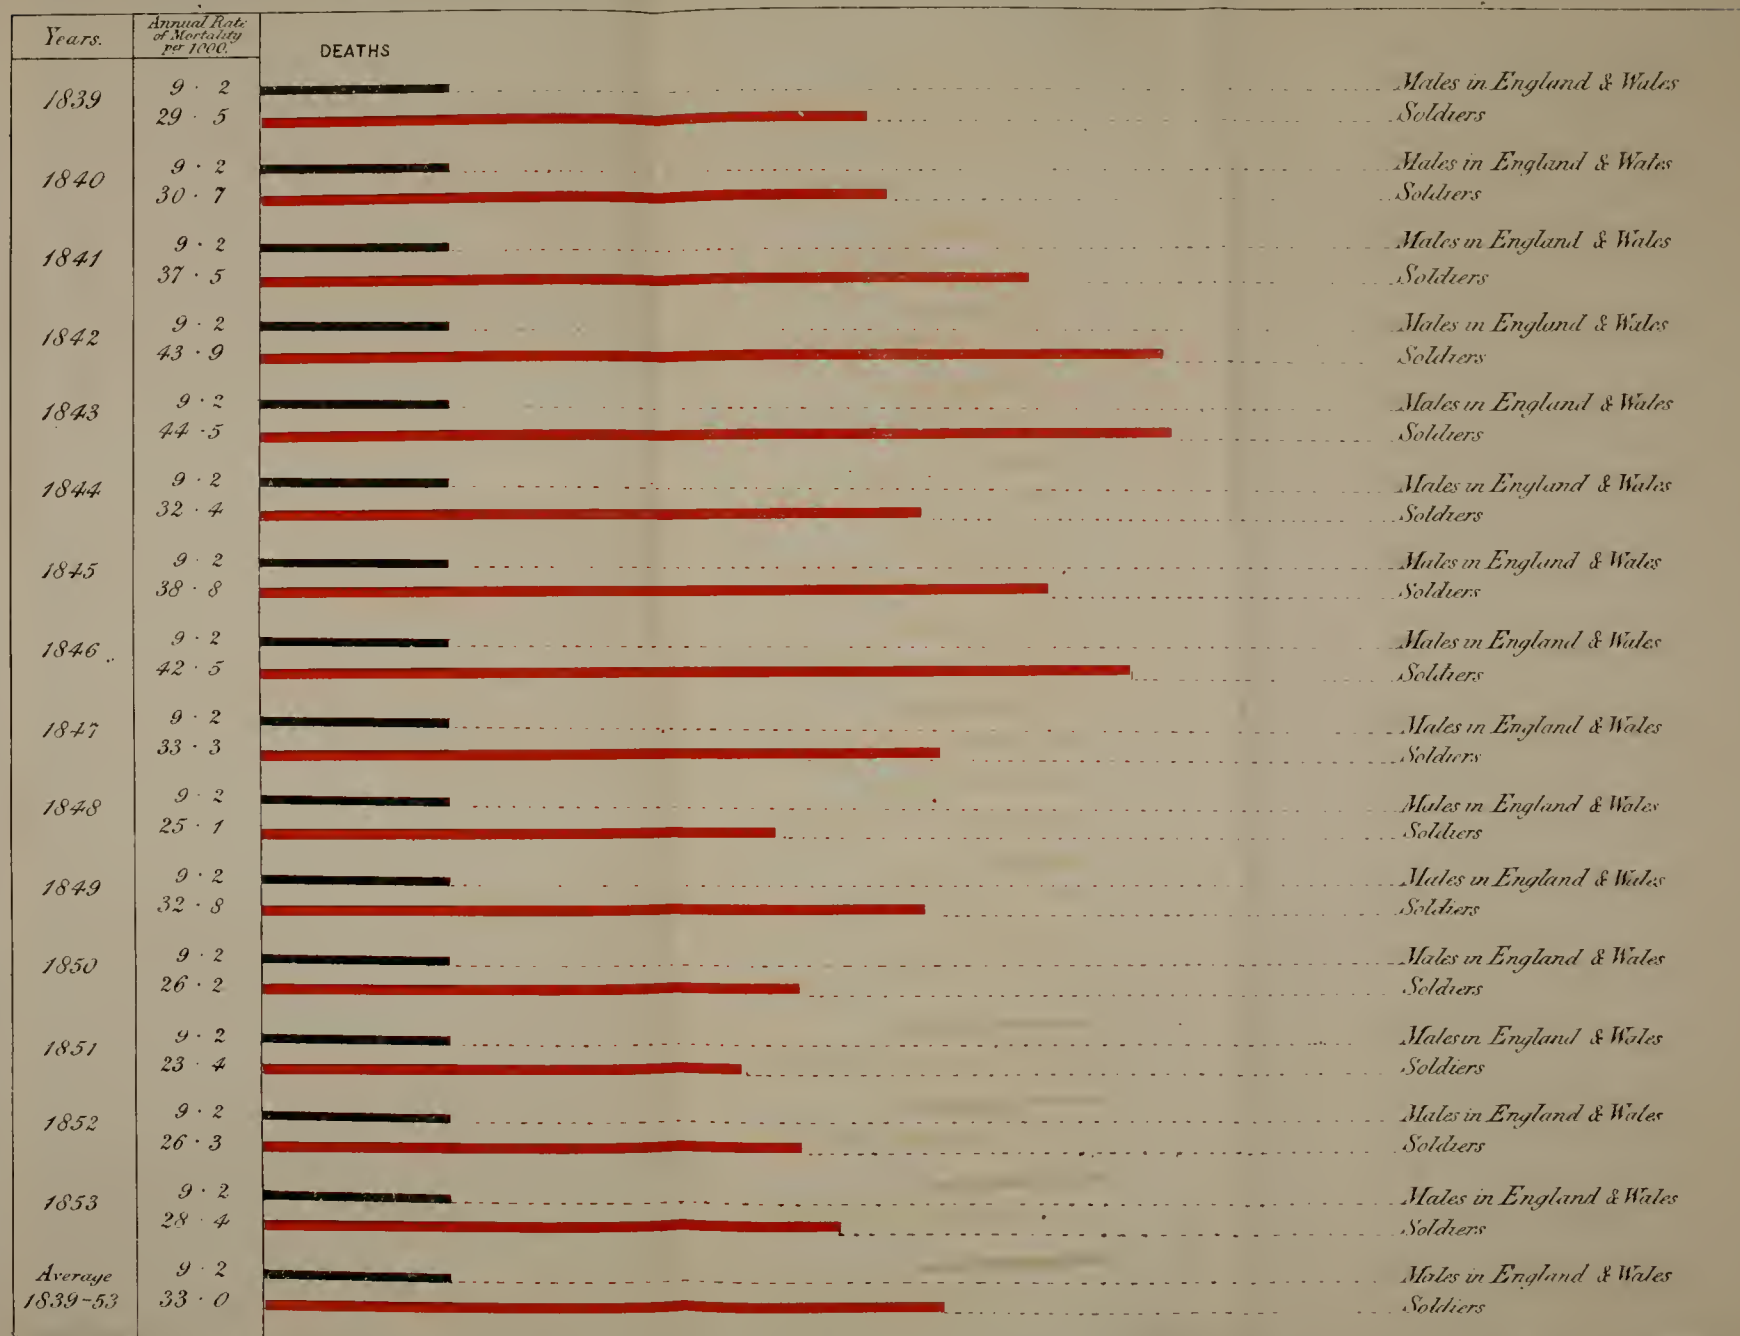 Years.
Annual Rate of Mortality per 1000.
DEATHS
1839
9 · 2 Males in England & Wales
29 · 5 Soldiers
1840
9 · 2 Males in England & Wales
30 · 7 Soldiers
1841
9 · 2 Males in England & Wales
37 · 5 Soldiers
1842
9 · 2 Males in England & Wales
43 · 9 Soldiers
1843
9 · 2 Males in England & Wales
44 · 5 Soldiers
1844
9 · 2 Males in England & Wales
32 · 4 Soldiers
1845
9 · 2 Males in England & Wales
38 · 8 Soldiers
1846
9 · 2 Males in England & Wales
42 · 5 Soldiers
1847
9 · 2 Males in England & Wales
33 · 3 Soldiers
1848
9 · 2 Males in England & Wales
25 · 1 Soldiers
1849
9 · 2 Males in England & Wales
32 · 8 Soldiers
1850
9 · 2 Males in England & Wales
26 · 2 Soldiers
1851
9 · 2 Males in England & Wales
23 · 4 Soldiers
1852
9 · 2 Males in England & Wales
26 · 3 Soldiers
1853
9 · 2 Males in England & Wales
28 · 4 Soldiers
Average
1839-53
9 · 2 Males in England & Wales
33 · 0 Soldiers